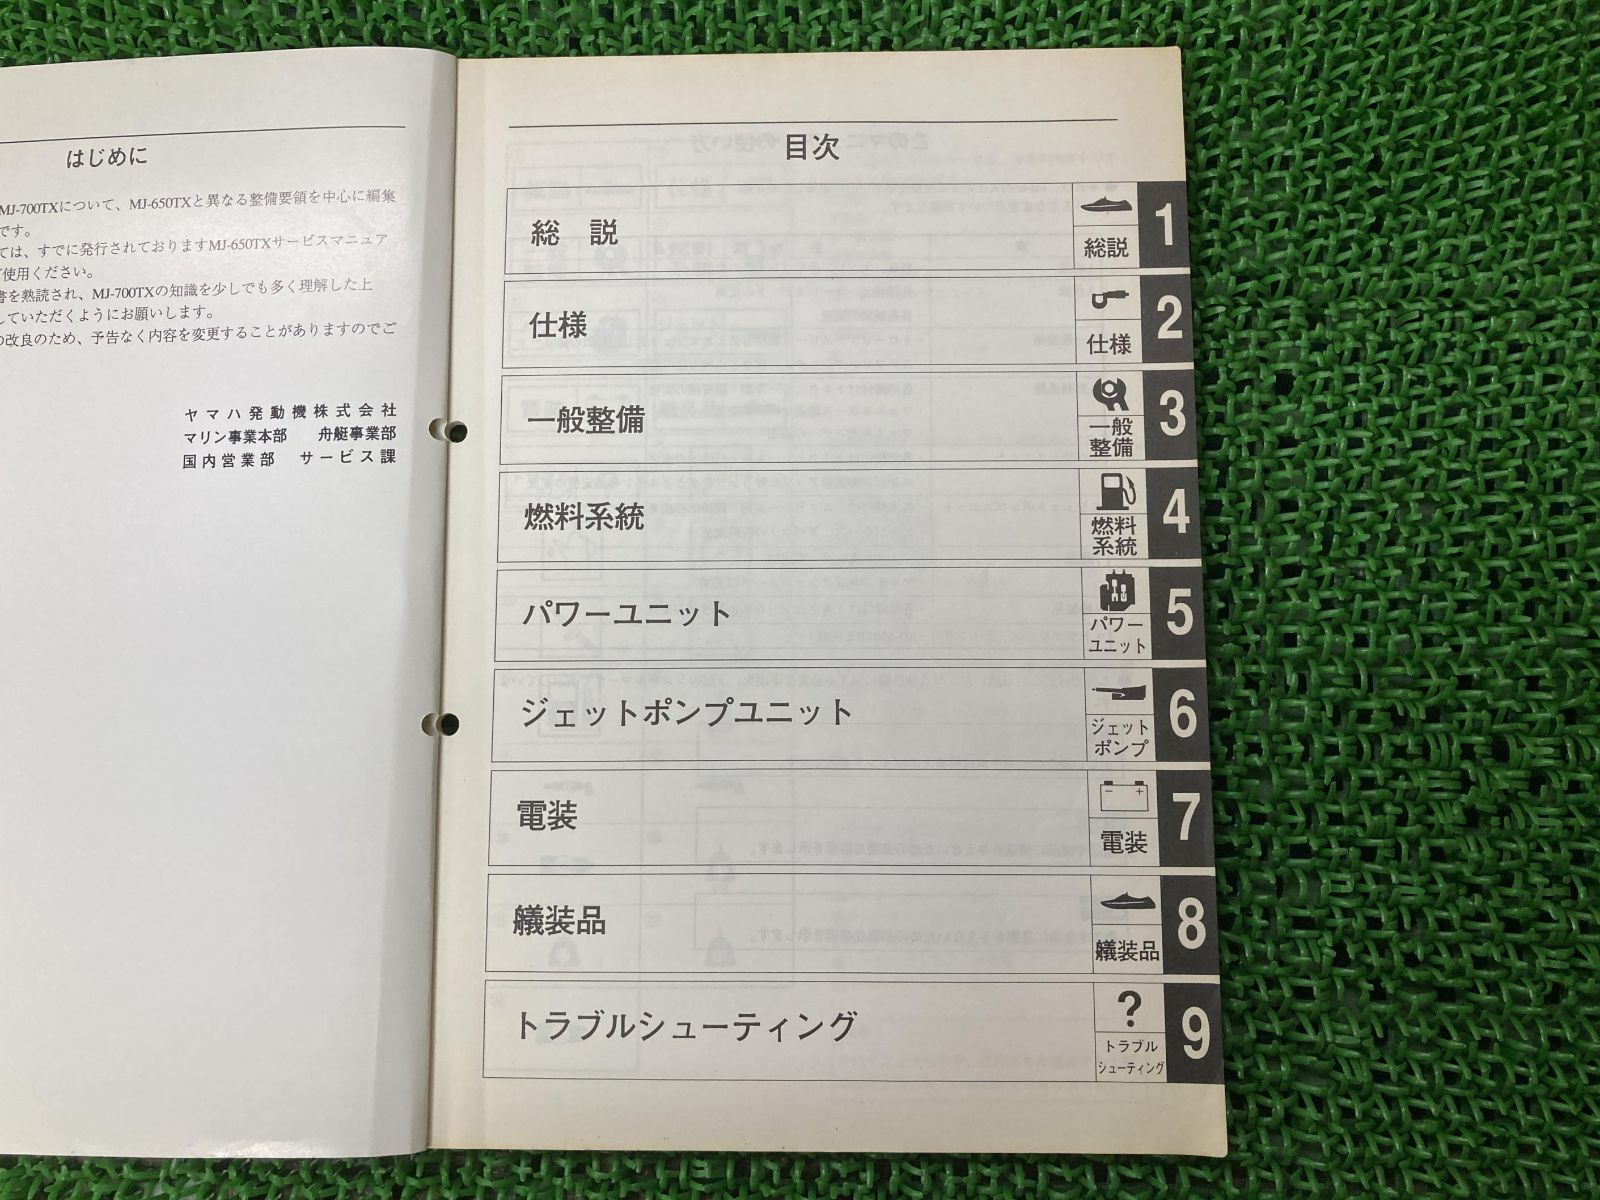 はじめに
MJ-700TXについて、MJ-650TXと異なる整備要領を中心に編集
です。
ては、すでに発行されておりますMJ-650TXサービスマニュア
使用ください。
書を熟読され、MJ-700TXの知識を少しでも多く理解した上
していただくようにお願いします。
の改良のため、予告なく内容を変更することがありますのでご
ヤマハ発動機株式会社
マリン事業本部 舟艇事業部
国内営業部 サービス課
目次
総 説
総説
1
仕様
仕様
2
一般整備
一般
整備
3
燃料系統
燃料
系統
4
パワーユニット
パワー
ユニット
5
ジェットポンプユニット
ジェット
ポンプ
6
電装
電装
7
艤装品
艤装品
8
トラブルシューティング
?
トラブル
シューティング
9